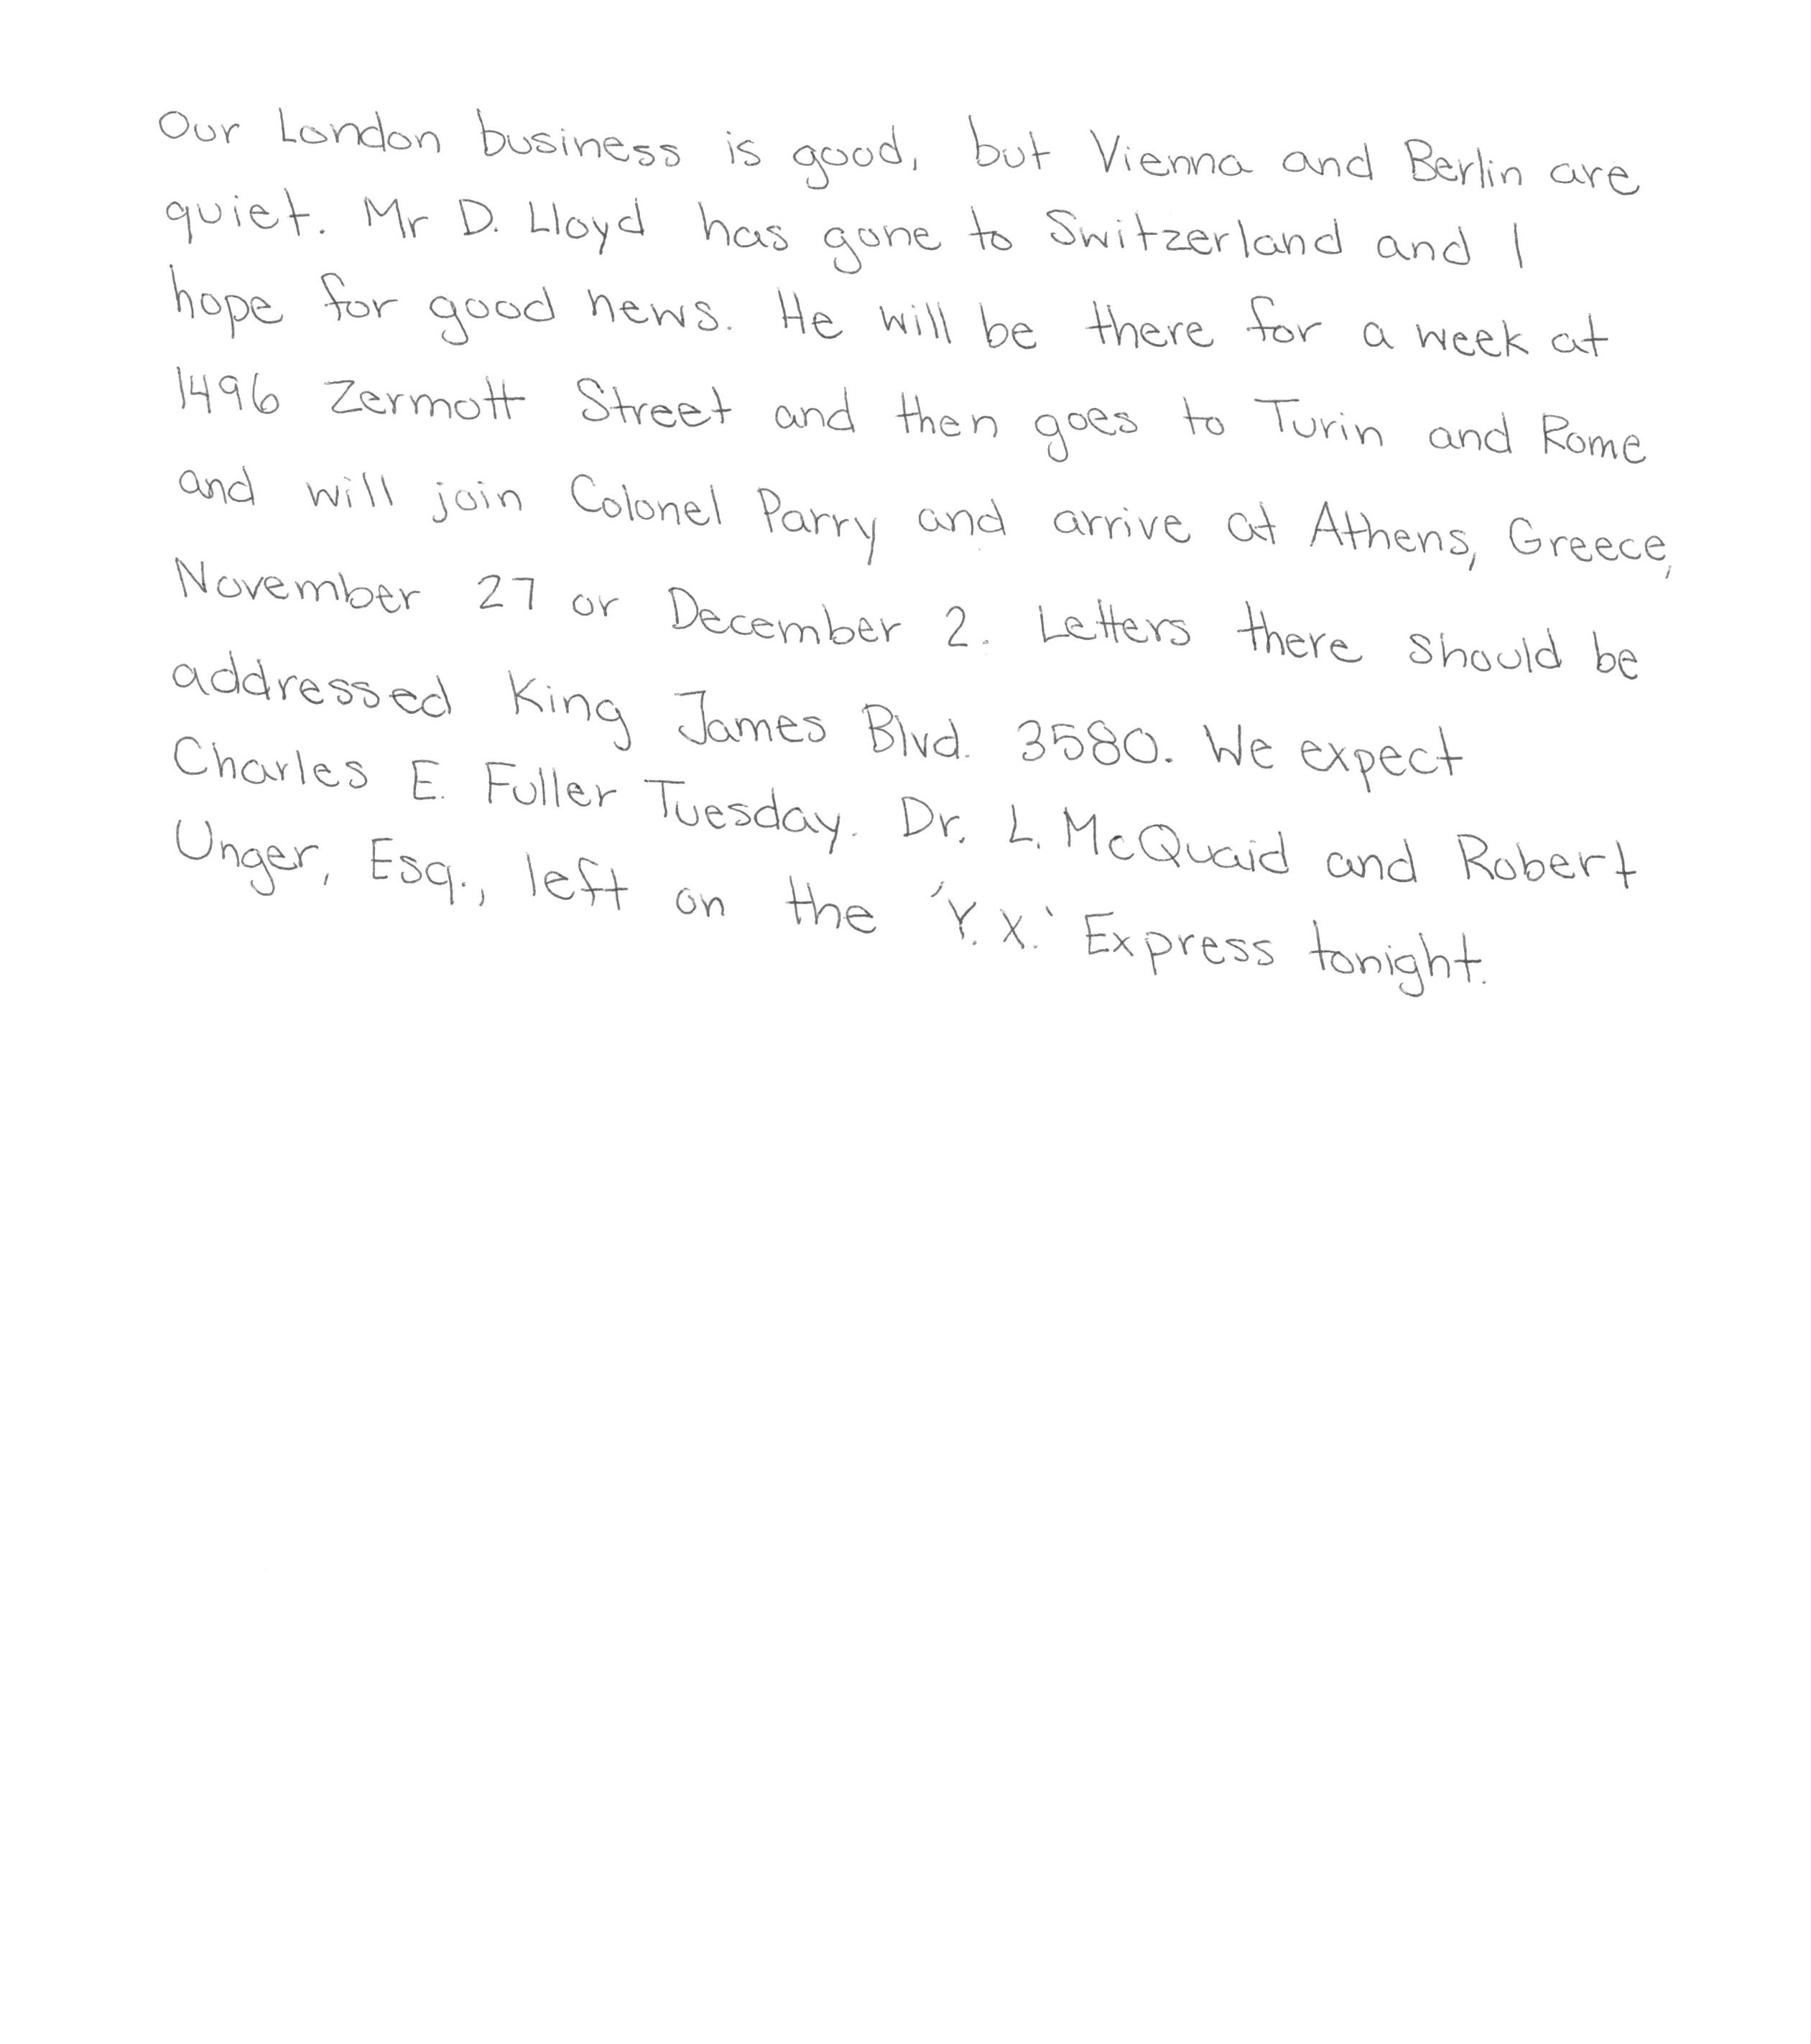 Our London business is good, but Vienna and Berlin are
quiet. Mr D. Lloyd has gone to Switzerland and I
hope for good news. He will be there for a week at
1496 Zermott Street and then goes to Turin and Rome
and will join Colonel Parry and arrive at Athens, Greece,
November 27 or December 2. Letters there should be
addressed King James Blvd. 3580. We expect
Charles E. Fuller Tuesday. Dr. L. McQuaid and Robert
Unger, Esq., left on the 'Y.X.' Express tonight.